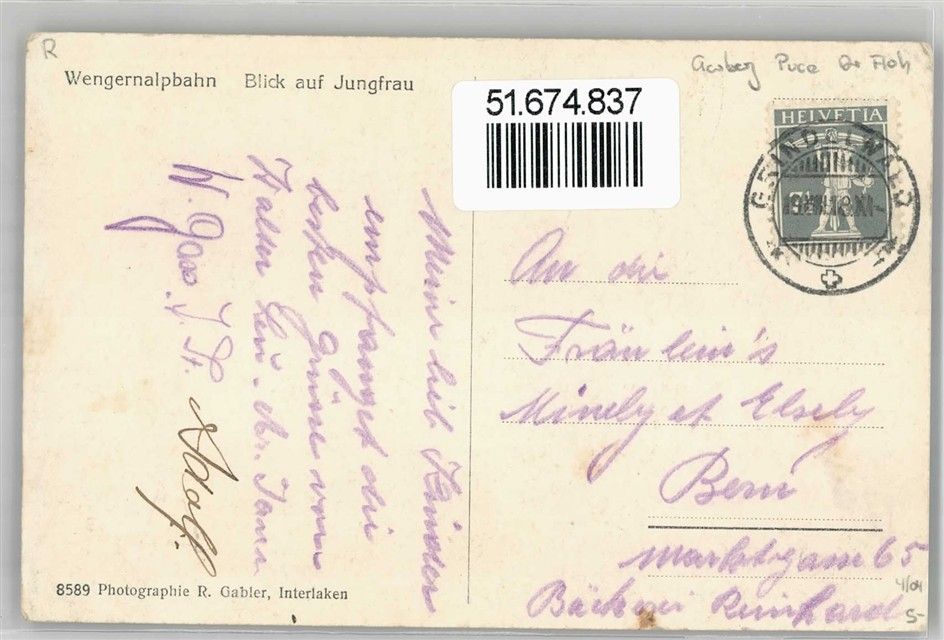 R
Wengernalpbahn Blick auf Jungfrau
51.674.837
HELVETIA
GRINDELWALD
Meine lieb Kinder
empfanget die
besten Grüsse von
Adolf.
An die
Fräulein's
Minely et Elsely
Bern
Marktgasse 65
Bäckerei Reinhard
8589 Photographie R. Gabler, Interlaken
4/04
S-